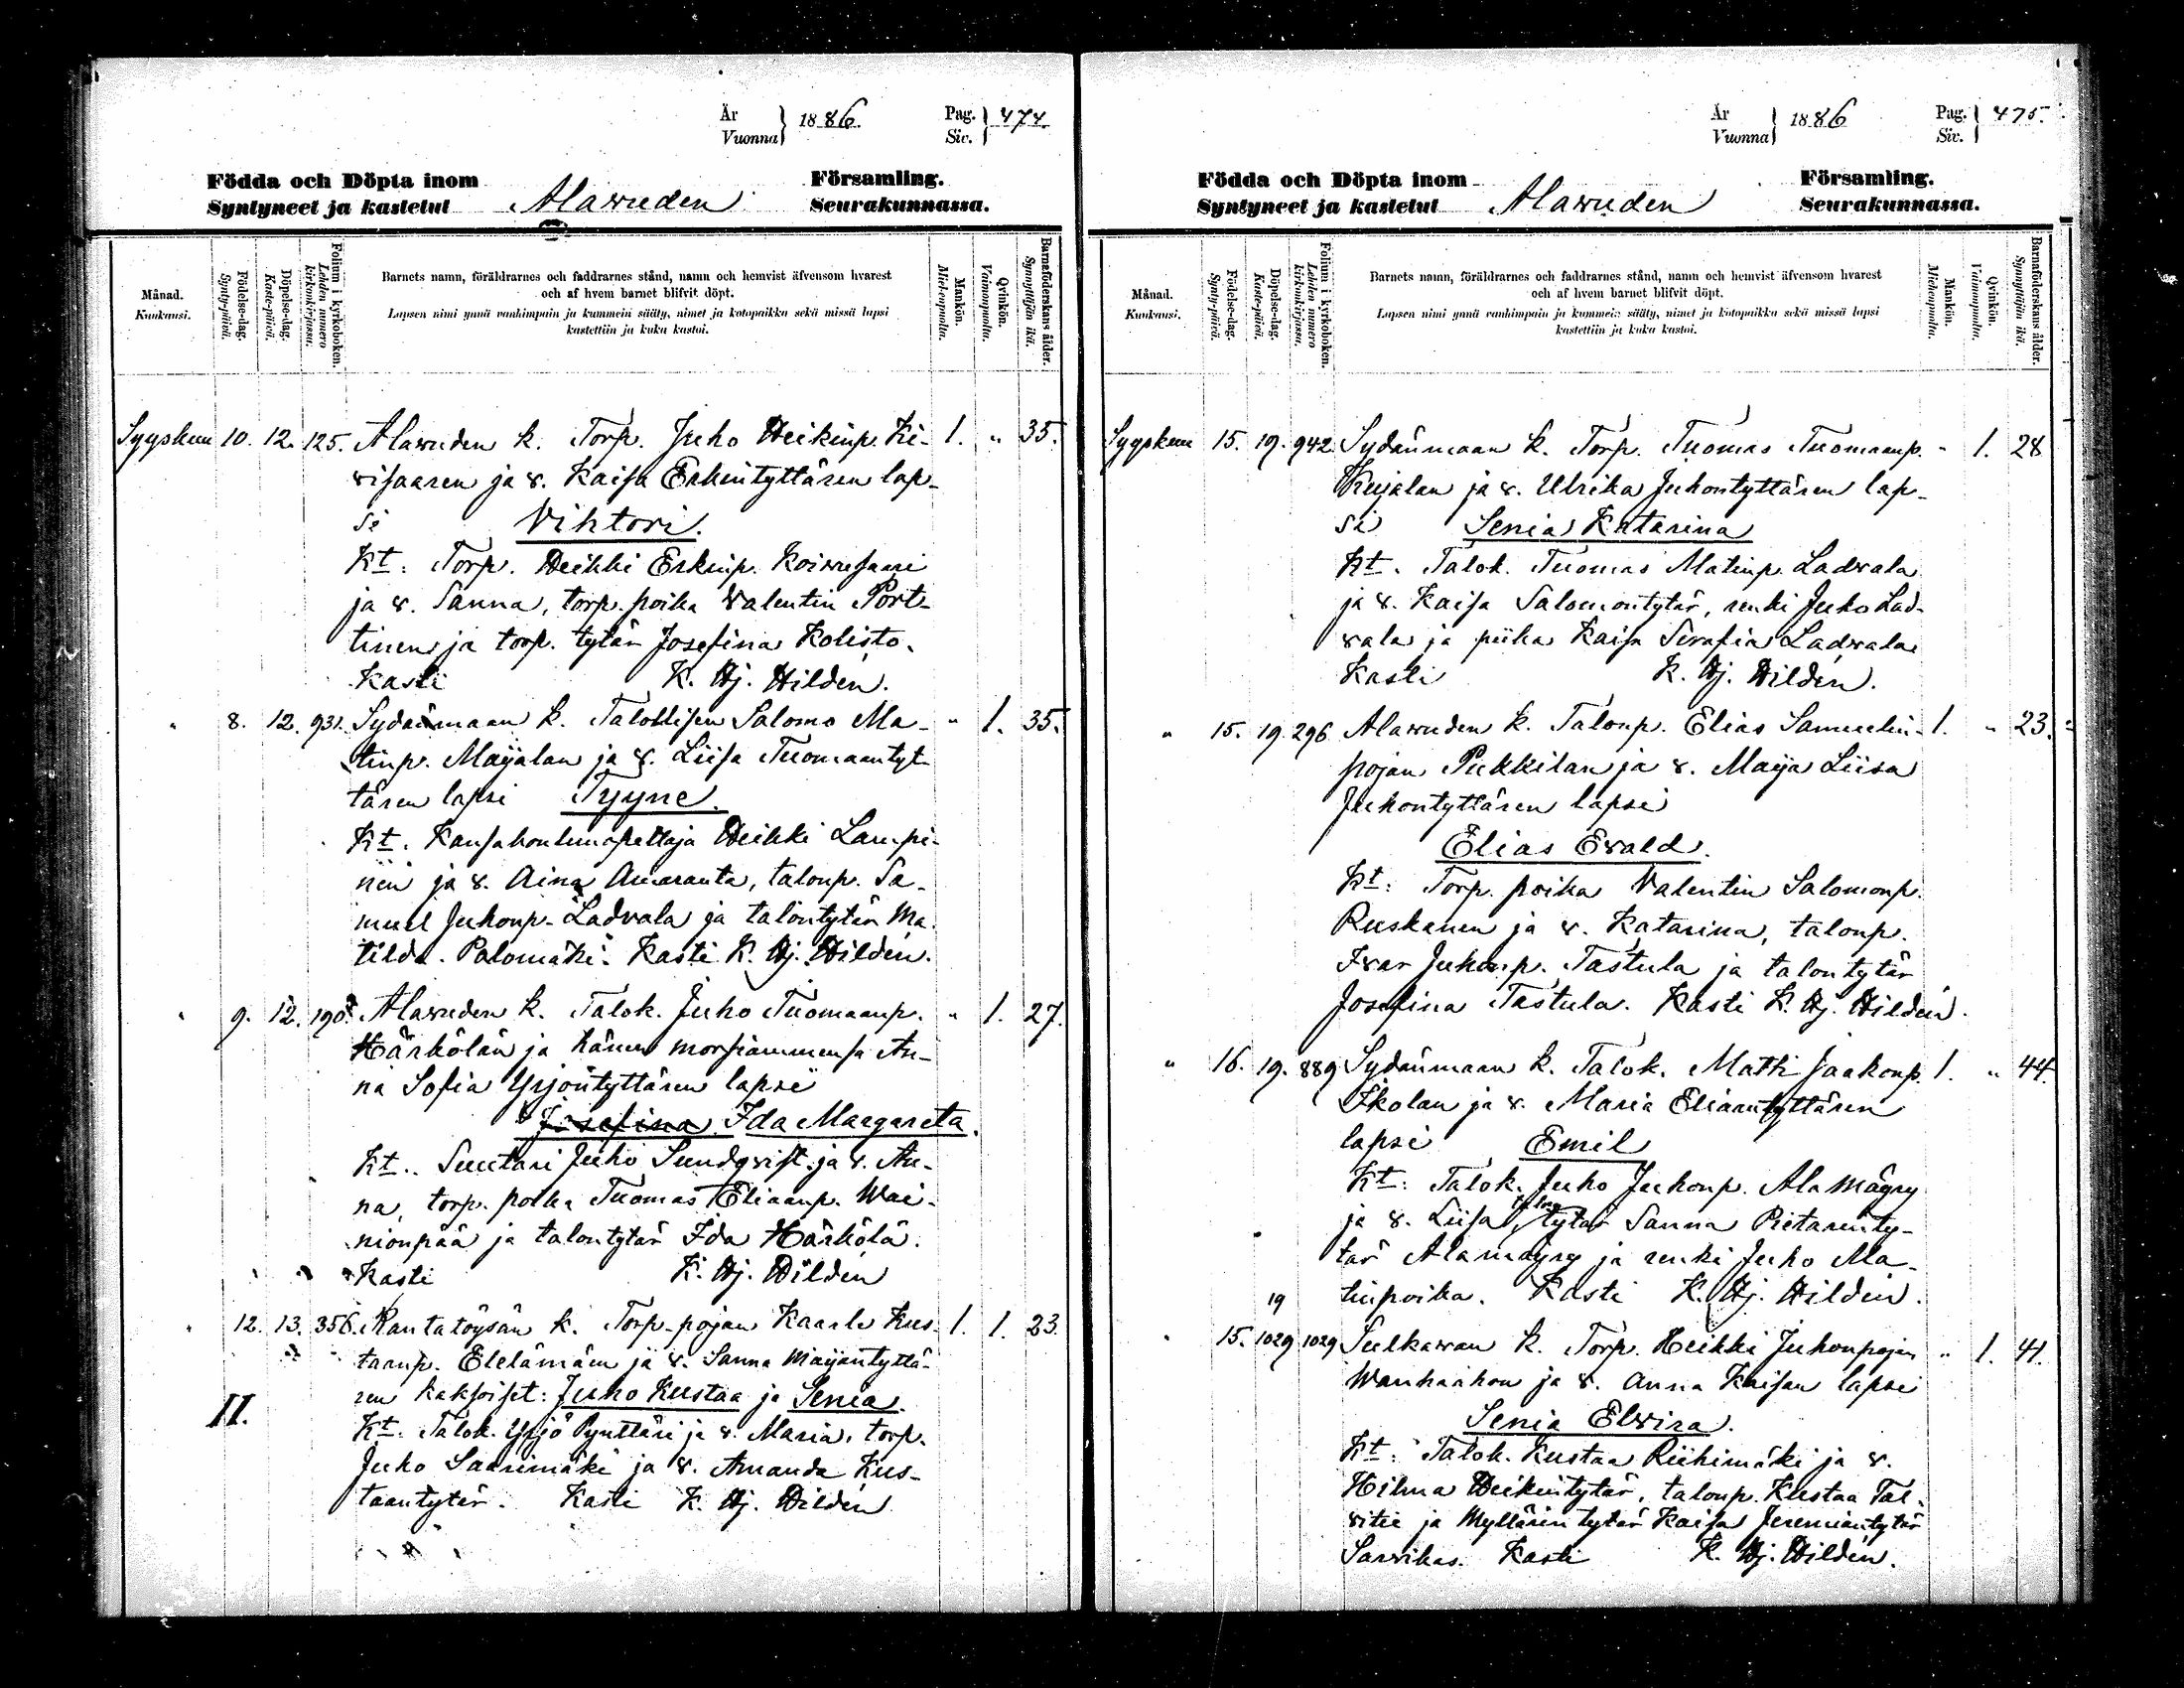 År
Vuonna
1886
Pag.
Siv.
474
Födda och Döpta inom
Syntyneet ja kastetut
Alavuden
Församling.
Seurakunnassa.
Månad.
Kuukausi.
Födelse-dag.
Synty-päivä.
Döpelse-dag.
Kaste-päivä.
Folium i kyrkoboken.
Lehden numero kirkonkirjassa.
Barnets namn, föräldrarnes och faddrarnes stånd, namn och hemvist äfvensom hvarest
och af hvem barnet blifvit döpt.
Lapsen nimi ynnä vanhimpain ja kummein sääty, nimet ja kotopaikka sekä missä lapsi
kastettiin ja kuka kastoi.
Mankön.
Miehenpuolta.
Qvinkön.
Vaimonpuolta.
Barnaföderskans ålder.
Synnyttäjän ikä.
Syyskuu 10. 12. 125. Alavuden k. Torp. Juho Heikinp. Ki- 1. " 35.
visaaren ja v. Kaisa Erkintyttären lap-
si Vihtori.
Kt: Torp. Heikki Erkinp. Koivusaari
ja v. Sanna, torp. poika Valentin Port-
tinen ja torp. tytär Josefina Kolisto.
Kasti K. Hj. Hildén.
" 8. 12. 931. Sydänmaan k. Talollisen Salomo Ma- " 1. 35.
tinp. Maijalan ja v. Liisa Tuomaantyt-
tären lapsi Tyyne.
Kt. Kansakoulunopettaja Heikki Lampi-
nen ja v. Aina Amaranta, talonp. Sa-
muel Juhonp. Ladvala ja talontytär Ma-
tilda Palomäki. Kasti K. Hj. Hildén.
" 9. 12. 190. Alavuden k. Talok. Juho Tuomaanp. " 1. 27.
Härkölän ja hänen morsiammensa An-
na Sofia Yrjöntyttären lapsi
Josefina Ida Margareta.
Kt. Suutari Juho Sundqvist ja v. An-
na, torp. poika Tuomas Eliaanp. Wai-
nionpää ja talontytär Ida Härkölä.
Kasti K. Hj. Hildén
" 12. 13. 356. Rantatöysän k. Torp. pojan Kaarle Kus- 1. 1. 23.
taanp. Elelämäen ja v. Sanna Maijantyttä-
ren kaksoiset: Juho Kustaa ja Senia.
II.
Kt. Talok. Yrjö Pynttäri ja v. Maria, torp.
Juho Saarimäki ja v. Amanda Kus-
taantytär. Kasti K. Hj. Hildén
År
Vuonna
1886
Pag.
Siv.
475.
Födda och Döpta inom
Syntyneet ja kastetut
Alavuden
Församling.
Seurakunnassa.
Månad.
Kuukausi.
Födelse-dag.
Synty-päivä.
Döpelse-dag.
Kaste-päivä.
Folium i kyrkoboken.
Lehden numero kirkonkirjassa.
Barnets namn, föräldrarnes och faddrarnes stånd, namn och hemvist äfvensom hvarest
och af hvem barnet blifvit döpt.
Lapsen nimi ynnä vanhimpain ja kummein sääty, nimet ja kotopaikka sekä missä lapsi
kastettiin ja kuka kastoi.
Mankön.
Miehenpuolta.
Qvinkön.
Vaimonpuolta.
Barnaföderskans ålder.
Synnyttäjän ikä.
Syyskuu 15. 19. 942. Sydänmaan k. Torp. Tuomas Tuomaanp. " 1. 28
Kujalan ja v. Ulrika Juhontyttären lap-
si Senia Katarina
Kt. Talok. Tuomas Matinp. Ladvala
ja v. Kaisa Salomontytär, renki Juho Lad-
vala ja piika Kaisa Serafia Ladvala.
Kasti K. Hj. Hildén.
" 15. 19. 296 Alavuden k. Talonp. Elias Samuelin- 1. " 23.
pojan Pukkilan ja v. Maija Liisa
Juhontyttären lapsi
Elias Evald.
Kt: Torp. poika Valentin Salomonp.
Ruskanen ja v. Katarina, talonp.
Ivar Juhonp. Tastula ja talontytär
Josefina Tastula. Kasti K. Hj. Hildén.
" 16. 19. 889 Sydänmaan k. Talok. Matti Jaakonp. 1. " 44.
Ikolan ja v. Maria Eliaantyttären
lapsi Emil
Kt: Talok. Juho Juhonp. Alamäyry
ja v. Liisa, talon tytär Sanna Pietarinty-
tär Alamäyry ja renki Juho Ma-
tinpoika. Kasti K. Hj. Hildén.
19
" 15. 1029 1029 Sulkavan k. Torp. Heikki Juhonpojan " 1. 41.
Wanhankon ja v. Anna Kaisan lapsi
Senia Elvira.
Kt: Talok. Kustaa Riihimäki ja v.
Hilma Heikintytär, talonp. Kustaa Tal-
vitie ja Myllärin tytär Kaisa Jeremiantytär
Sarvikas. Kasti K. Hj. Hildén.